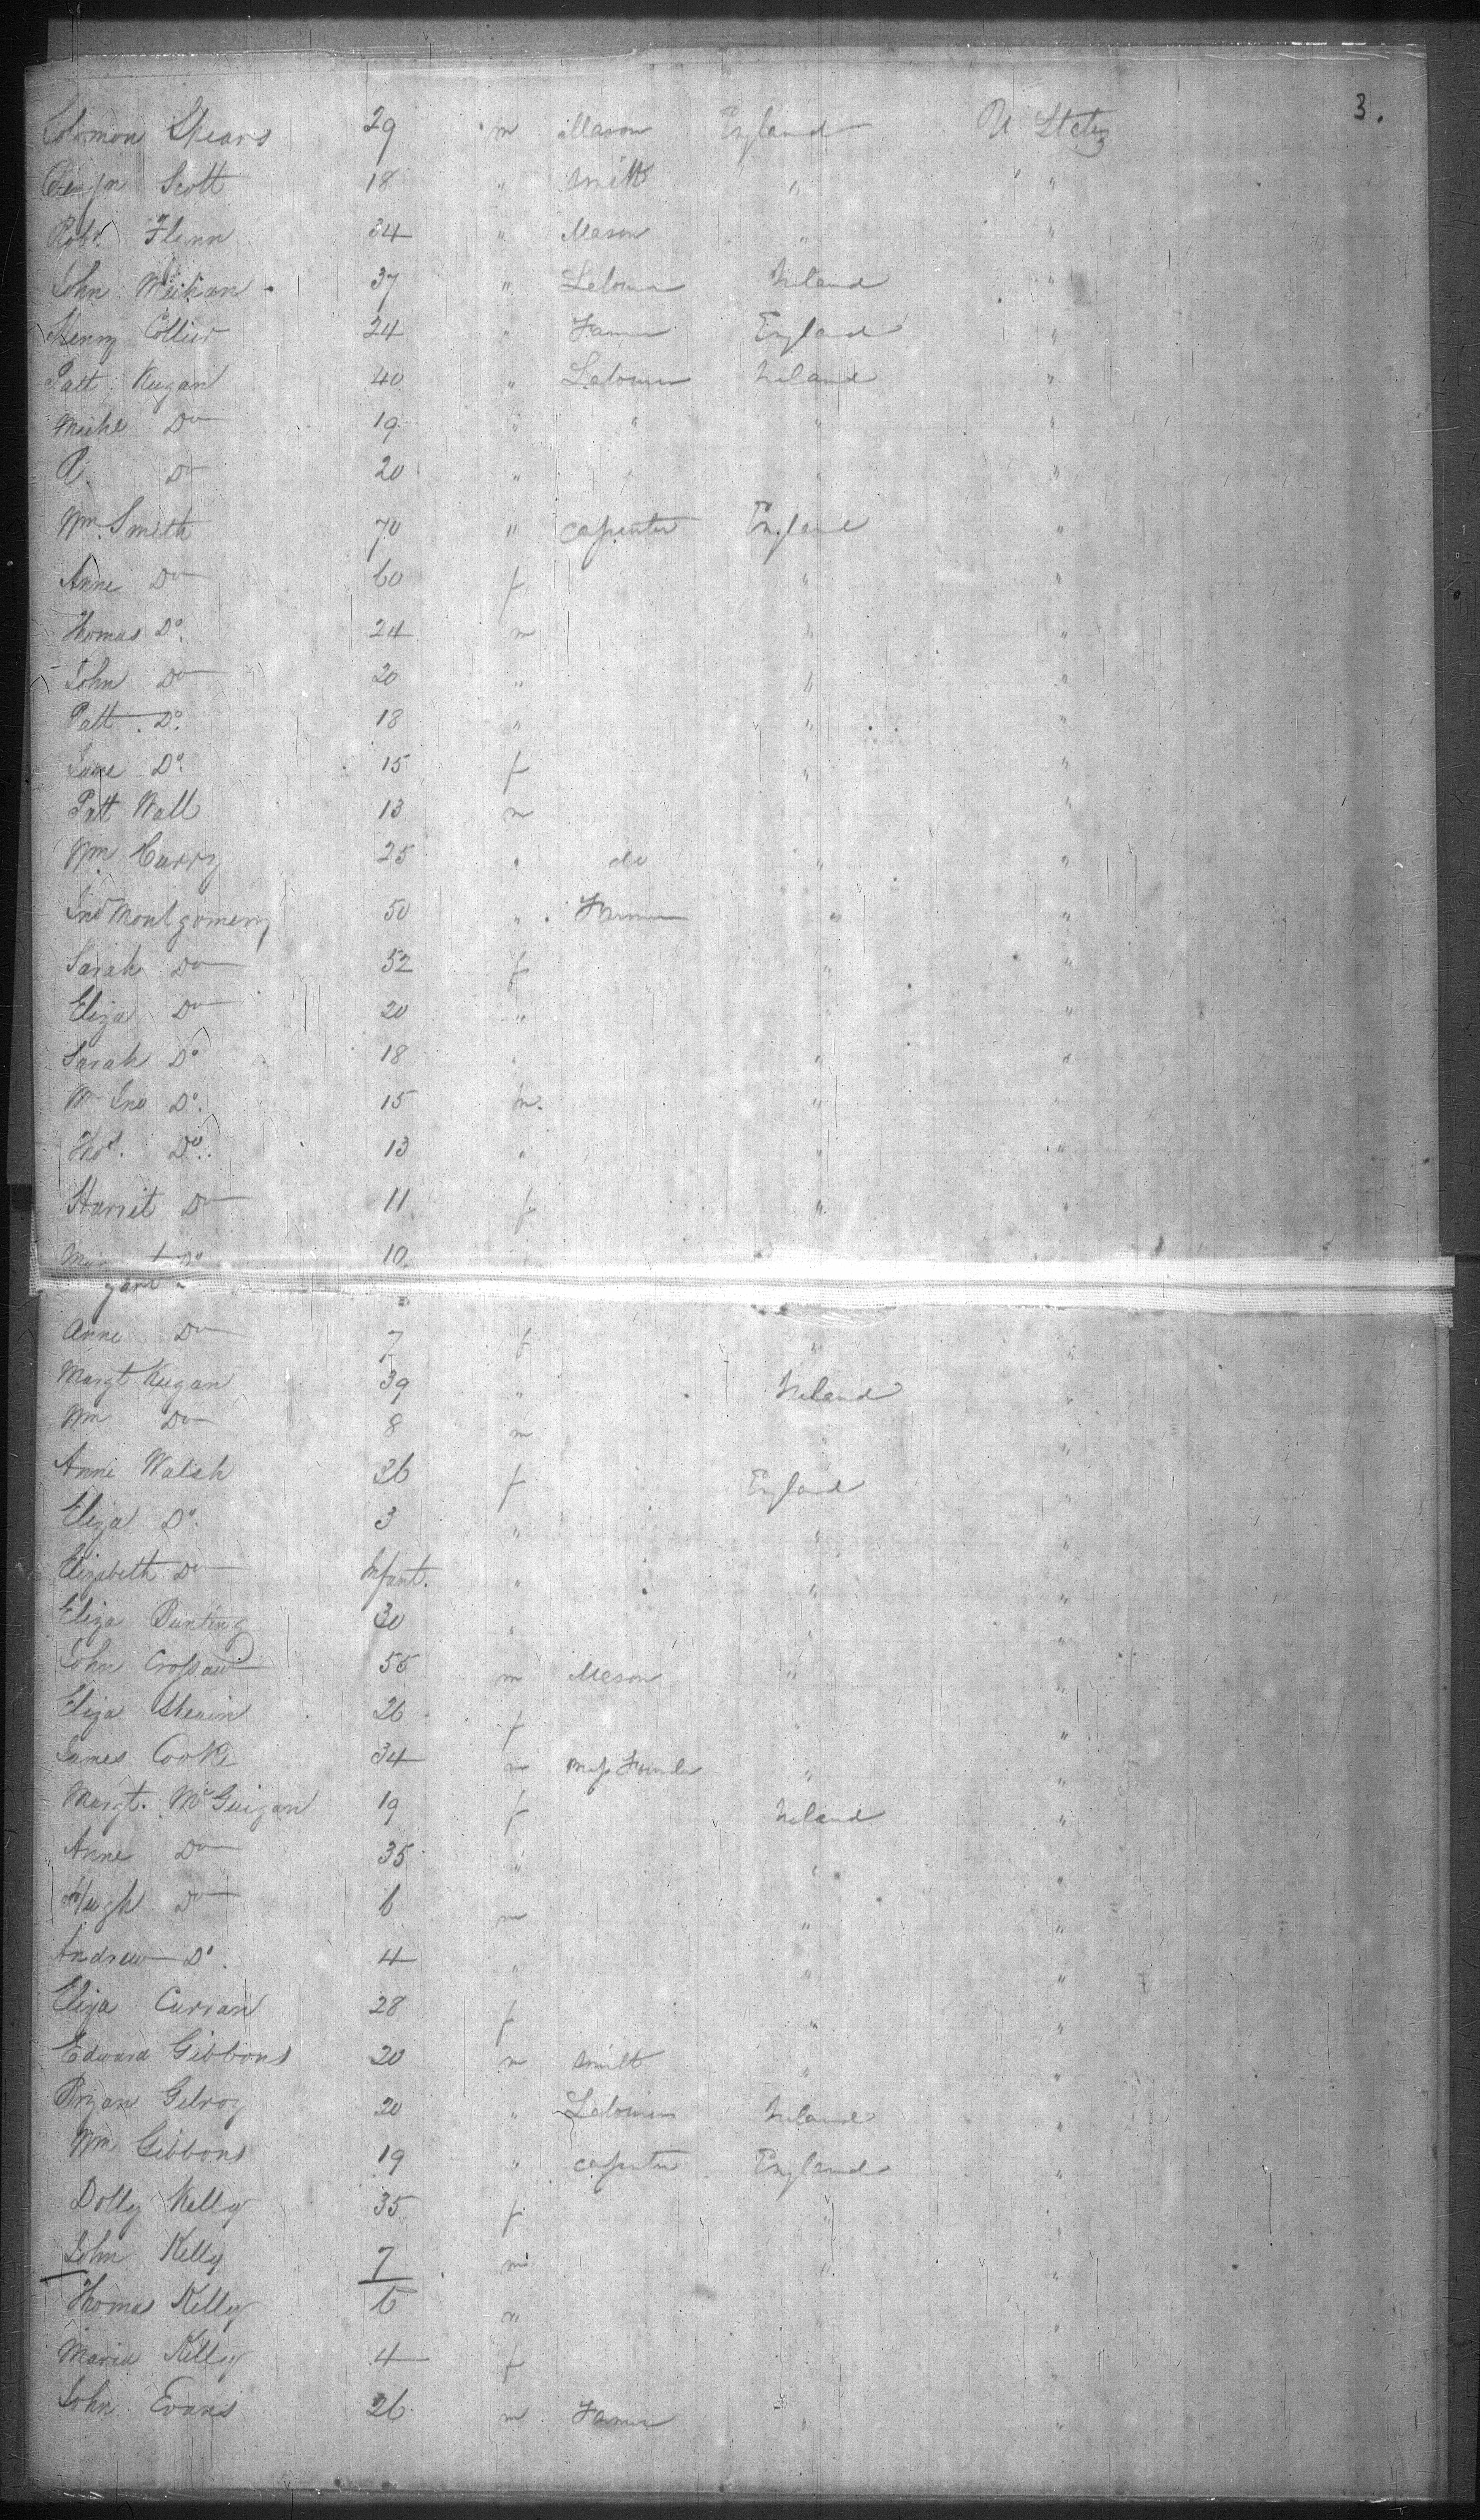 3.
Solomon Spears 29 m Mason England U States
Benjn Scott 18 " Smith " "
Robt. Flinn 34 " Mason " "
John Meikan 37 " Labourer Ireland "
Henry Collier 24 " Farmer England "
Patt. Keegan 40 " Labourer Ireland "
Mich.l Do 19 " " " "
P. Do 20 " " " "
Wm. Smith 70 " Carpenter England "
Anne Do 60 f " "
Thomas Do. 24 m " "
John Do 20 " " "
Patt. Do. 18 " " "
Jane Do. 15 f " "
Patt Wall 13 m "
Wm. Curry 25 " do " "
Jno Montgomery 50 " Farmer " "
Sarah Do 52 f " "
Eliza Do 20 " " "
Sarah Do 18 " " "
Wm Jno Do. 15 m. " "
Thos. Do. 13 " " "
Harriet Do 11 f " "
Margaret Do 10
Anne Do 7 f " "
Margt Keegan 39 " Ireland "
Wm Do 8 m " "
Anne Walsh 26 f England "
Eliza Do. 3 " " "
Elizabeth Do Infant. " " "
Eliza Bunting 30 " " "
John Crossaw 55 m Mason " "
Eliza 26 f " "
James Cooke 34 m Founder " "
Margt. McGuigan 19 f Ireland "
Anne Do 35 " " "
Hugh Do 6 m " "
Andrew Do. 4 " " "
Eliza Curran 28 f " "
Edward Gibbons 20 m Smith " "
Bryan Gilroy 20 " Labourer Ireland "
Wm Gibbons 19 " Carpenter England "
Dolly Kelly 35 f " "
John Kelly 7 m " "
Thomas Kelly 6 m " "
Maria Kelly 4 f " "
John Evans 26 m Farmer " "